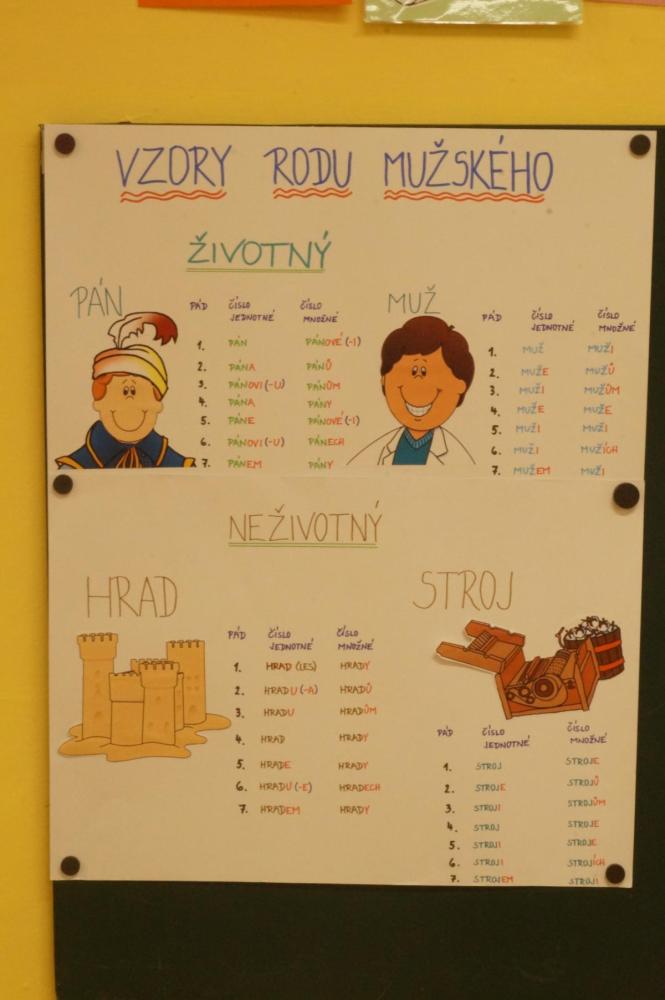 VZORY RODU MUŽSKÉHO
ŽIVOTNÝ
PÁN
PÁD ČÍSLO JEDNOTNÉ ČÍSLO MNOŽNÉ
1. PÁN PÁNOVÉ (-I)
2. PÁNA PÁNŮ
3. PÁNOVI (-U) PÁNŮM
4. PÁNA PÁNY
5. PÁNE PÁNOVÉ (-I)
6. PÁNOVI (-U) PÁNECH
7. PÁNEM PÁNY
MUŽ
PÁD ČÍSLO JEDNOTNÉ ČÍSLO MNOŽNÉ
1. MUŽ MUŽI
2. MUŽE MUŽŮ
3. MUŽI MUŽŮM
4. MUŽE MUŽE
5. MUŽI MUŽI
6. MUŽI MUŽÍCH
7. MUŽEM MUŽI
NEŽIVOTNÝ
HRAD
PÁD ČÍSLO JEDNOTNÉ ČÍSLO MNOŽNÉ
1. HRAD (LES) HRADY
2. HRADU (-A) HRADŮ
3. HRADU HRADŮM
4. HRAD HRADY
5. HRADE HRADY
6. HRADU (-E) HRADECH
7. HRADEM HRADY
STROJ
PÁD ČÍSLO JEDNOTNÉ ČÍSLO MNOŽNÉ
1. STROJ STROJE
2. STROJE STROJŮ
3. STROJI STROJŮM
4. STROJ STROJE
5. STROJI STROJE
6. STROJI STROJÍCH
7. STROJEM STROJI